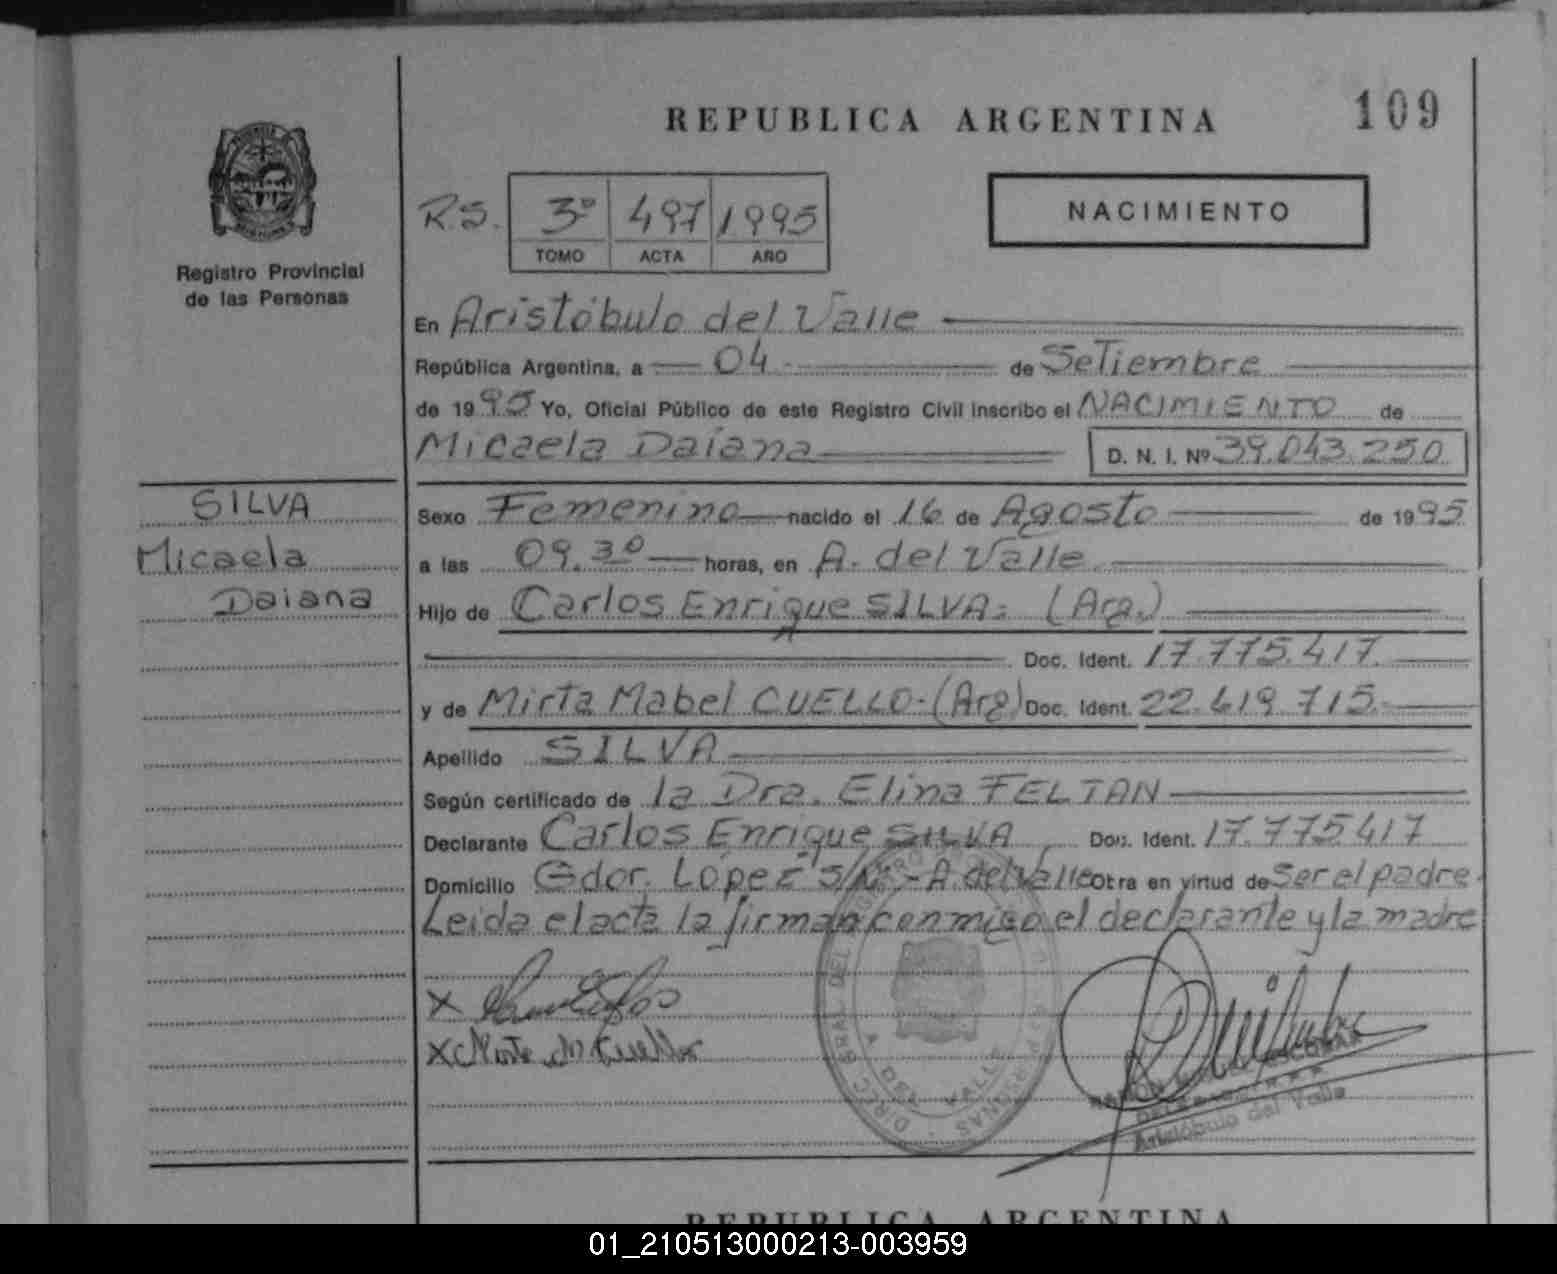 REPUBLICA ARGENTINA
109
Registro Provincial
de las Personas
R.S. 3º 497 1995
TOMO ACTA AÑO
NACIMIENTO
En Aristóbulo del Valle
República Argentina, a 04 de SeTiembre
de 1995 Yo, Oficial Público de este Registro Civil inscribo el NACIMIENTO de
Micaela Daiana D. N. I. Nº 39.043.250
SILVA
Micaela
Daiana
Sexo Femenino nacido el 16 de Agosto de 1995
a las 09.30 horas, en A. del Valle
Hijo de Carlos Enrique SILVA: (Arg.)
Doc. Ident. 17.775.417.
y de Mirta Mabel CUELLO.(Arg) Doc. Ident. 22.619.715.
Apellido SILVA
Según certificado de la Dra. Elina FELTAN
Declarante Carlos Enrique SILVA Doc. Ident. 17.775.417
Domicilio Gdor. López S/Nº.-A.del Valle Obra en virtud de Ser el padre.
Leida el acta la firman conmigo el declarante y la madre
X
X M. Cuello
DIREC. GRAL. DEL REGISTRO PERSONAS
VALLE
RAMON ESCOBAR
Aristóbulo del Valle
REPUBLICA ARGENTINA
01_210513000213-003959